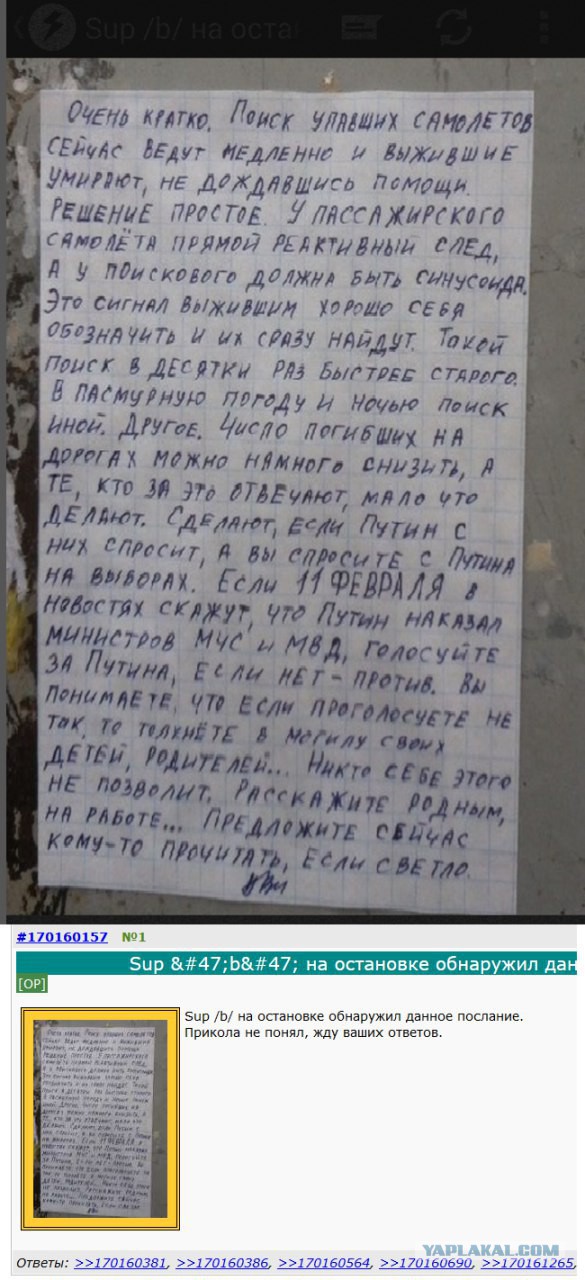 Sup /b/ на оста
Очень кратко. Поиск упавших самолетов
сейчас ведут медленно и выжившие
умирают, не дождавшись помощи.
Решение простое. У пассажирского
самолёта прямой реактивный след,
а у поискового должна быть синусоида.
Это сигнал выжившим хорошо себя
обозначить и их сразу найдут. Такой
поиск в десятки раз быстрее старого.
В пасмурную погоду и ночью поиск
иной. Другое. Число погибших на
дорогах можно намного снизить, а
те, кто за это отвечают, мало что
делают. Сделают, если Путин с
них спросит, а вы спросите с Путина
на выборах. Если 11 ФЕВРАЛЯ в
новостях скажут, что Путин наказал
министров МЧС и МВД, голосуйте
за Путина, если нет - против. Вы
понимаете, что если проголосуете не
так, то толкнёте в могилу своих
детей, родителей... Никто себе этого
не позволит. Расскажите родным,
на работе... Предложите сейчас
кому-то прочитать, если светло.
#170160157 №1
Sup &#47;b&#47; на остановке обнаружил дан
[OP]
Sup /b/ на остановке обнаружил данное послание.
Прикола не понял, жду ваших ответов.
YAPLAKAL.COM
Ответы: >>170160381, >>170160386, >>170160564, >>170160690, >>170161265,